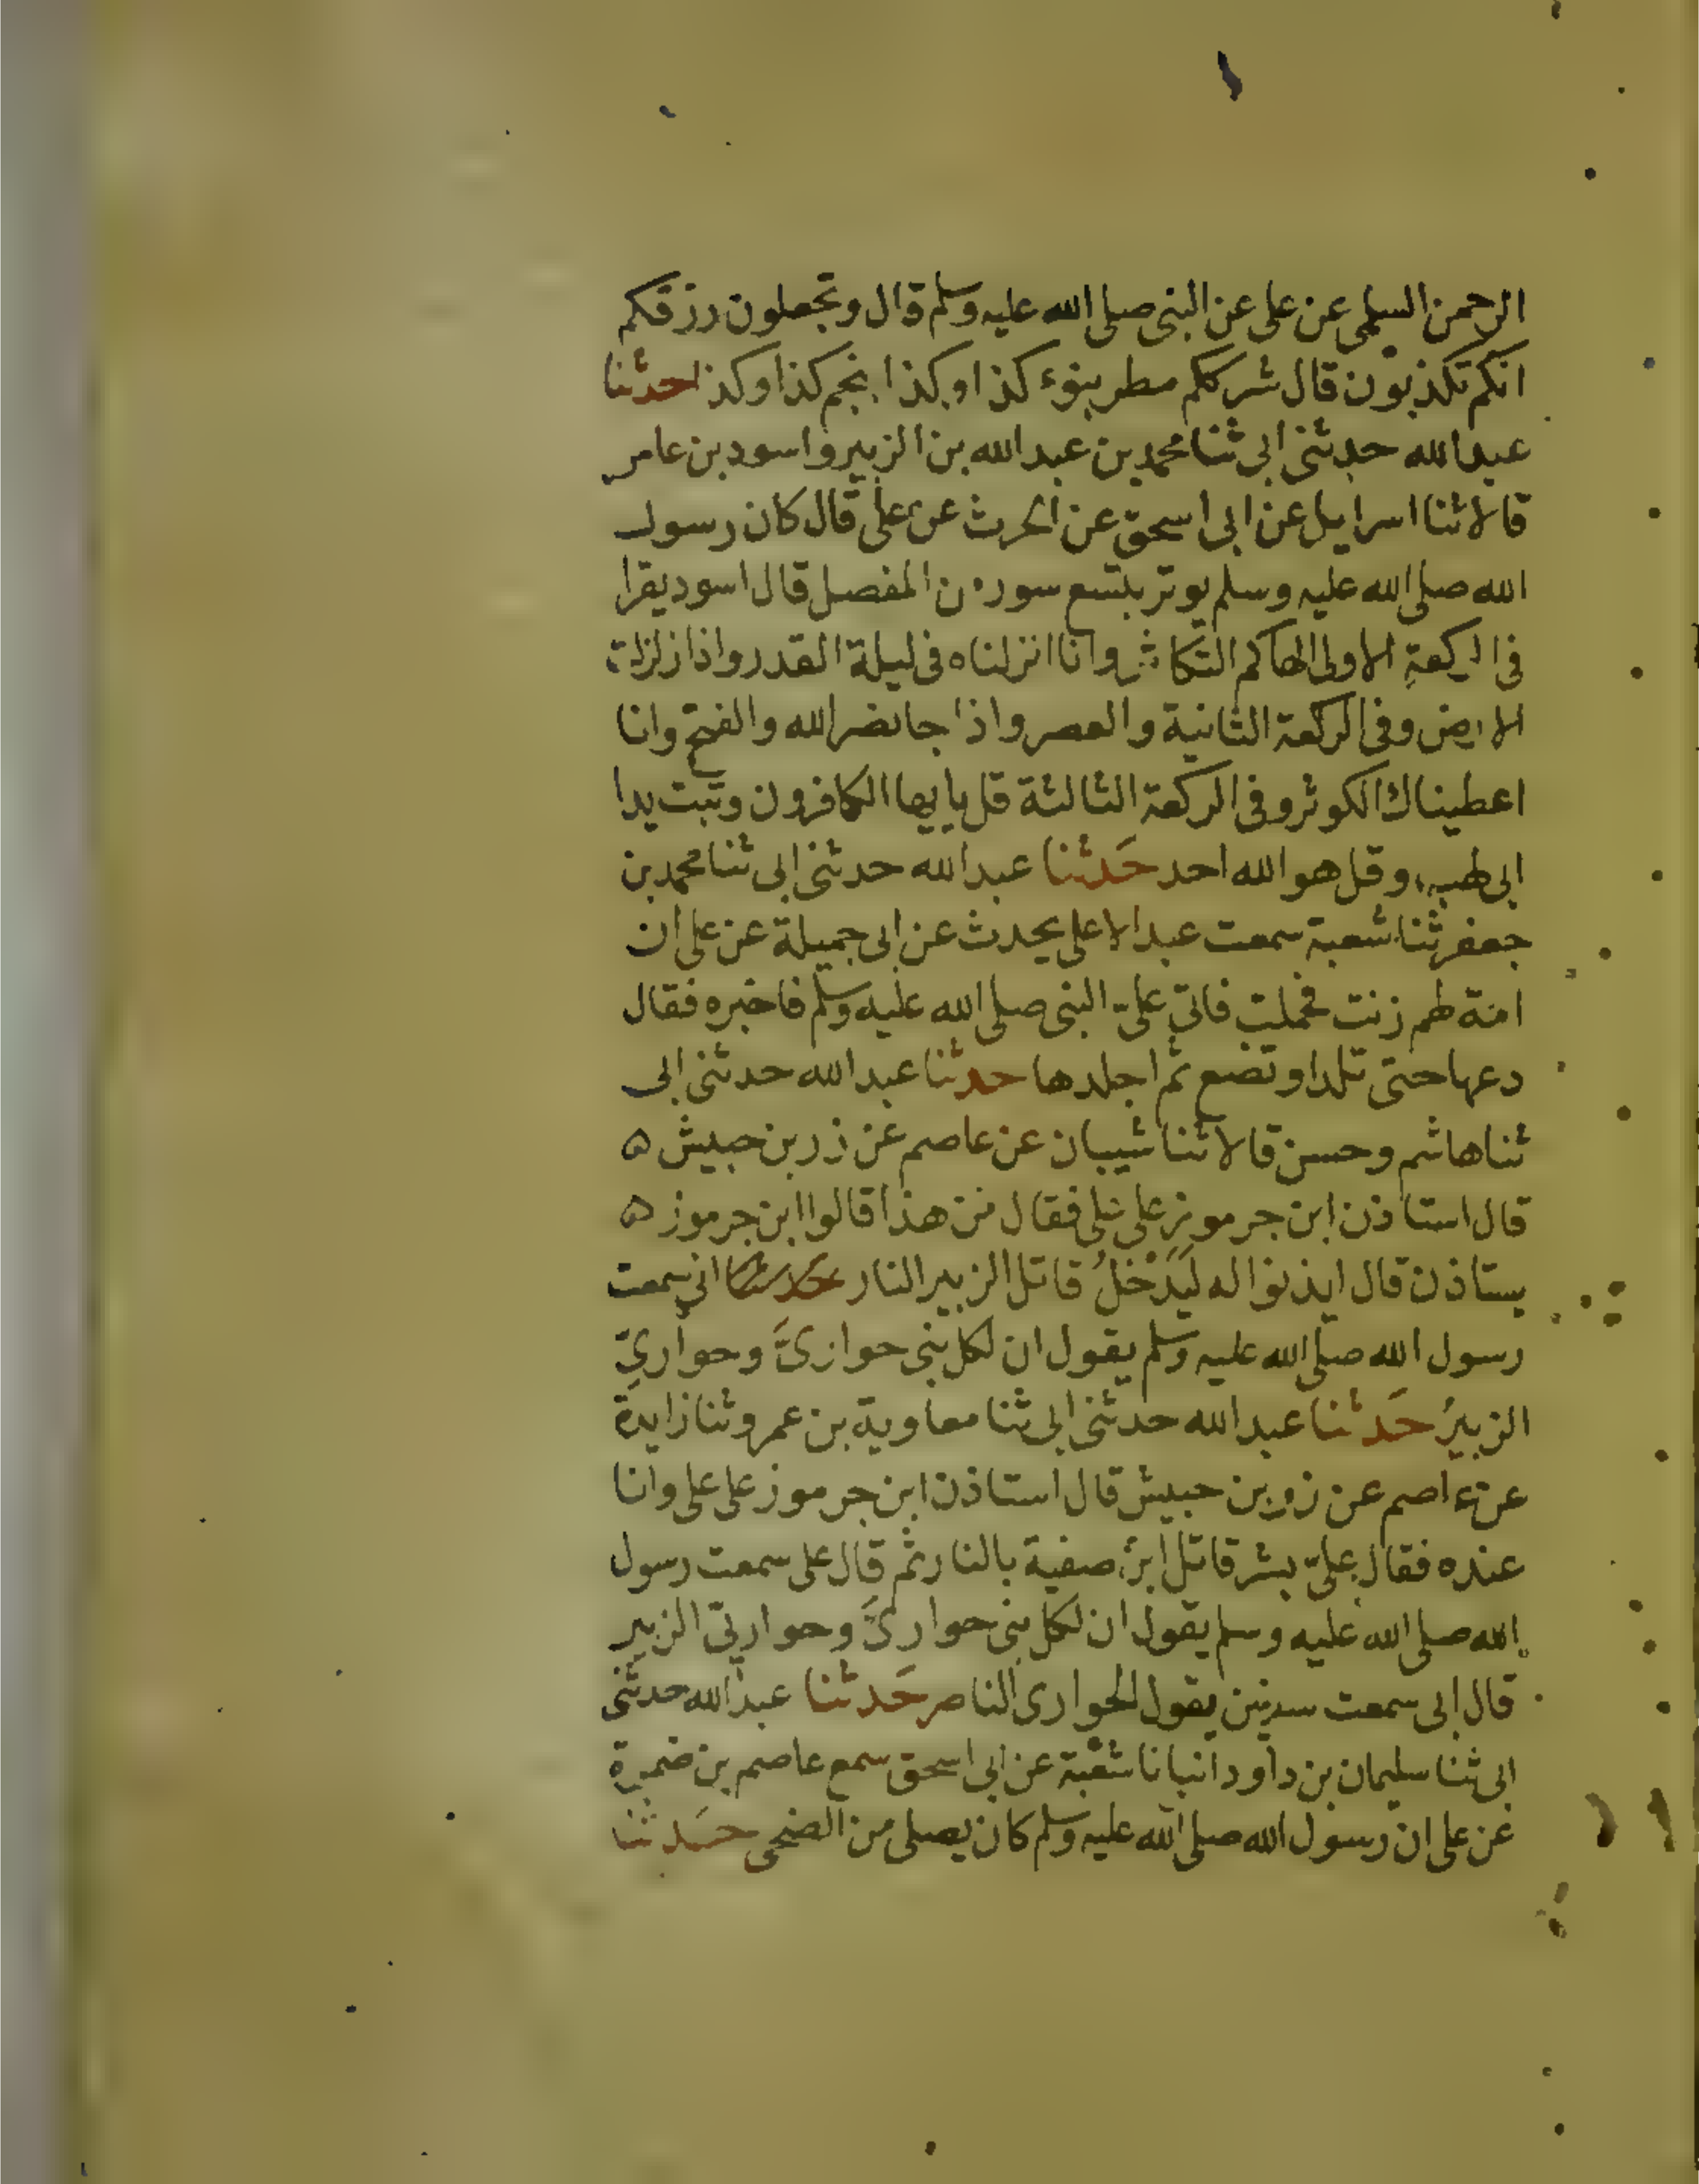 الرحمن السلمى عن على عن النبى صلى الله عليه وسلم قال وتجعلون رزقكم
انكم تكذبون قال شرككم مطر بنوء كذا وكذا بنجم كذا وكذا حدثنا
عبد الله حدثنى ابى ثنا محمد بن عبد الله بن الزبير واسود بن عامر
قالا ثنا اسرايل عن ابى اسحق عن الحرث عن على قال كان رسول
الله صلى الله عليه وسلم يوتر بتسع سور من المفصل قال اسود يقرا
فى الركعة الاولى الهاكم التكاثر وانا انزلناه فى ليلة القدر واذا زلزلت
الارض وفى الركعة الثانية والعصر واذا جا نصر الله والفتح وانا
اعطيناك الكوثر وفى الركعة الثالثة قل يا ايها الكافرون وتبت يدا
ابى لهب وقل هو الله احد حَدثنا عبد الله حدثنى ابى ثنا محمد بن
جعفر ثنا شعبة سمعت عبد الاعلى يحدث عن ابى جميلة عن على ان
امة لهم زنت فحملت فاتى علىّ النبى صلى الله عليه وسلم فاخبره فقال
دعها حتى تلد او تضع ثم اجلدها حدثنا عبد الله حدثنى ابى
ثنا هاشم وحسن قالا ثنا شيبان عن عاصم عن زر بن حبيش ه
قال استاذن ابن جرموز على على فقال من هذا قالوا ابن جرموز ه
يستاذن قال ايذنوا له ليَدْخلُ قاتل الزبير النار انى سمعت
رسول الله صلى الله عليه وسلم يقول ان لكل نبى حوارىَّ وحوارىّ
الزبيرُ حَدثنا عبد الله حدثنى ابى ثنا معاوية بن عمرو ثنا زايدة
عن عاصم عن زر بن حبيش قال استاذن ابن جرموز على على وانا
عنده فقال علىّ بشر قاتل ابن صفية بالنار ثم قال على سمعت رسول
الله صلى الله عليه وسلم يقول ان لكل نبى حوارىَّ وحوارىّ الزبير
قال ابى سمعت سفين يقول الحوارى الناصر حَدثنا عبد الله حدثنى
ابى ثنا سليمان بن داود انبانا شعبة عن ابى اسحق سمع عاصم بن ضمرة
عن على ان رسول الله صلى الله عليه وسلم كان يصلى من الضحى حَدثنا